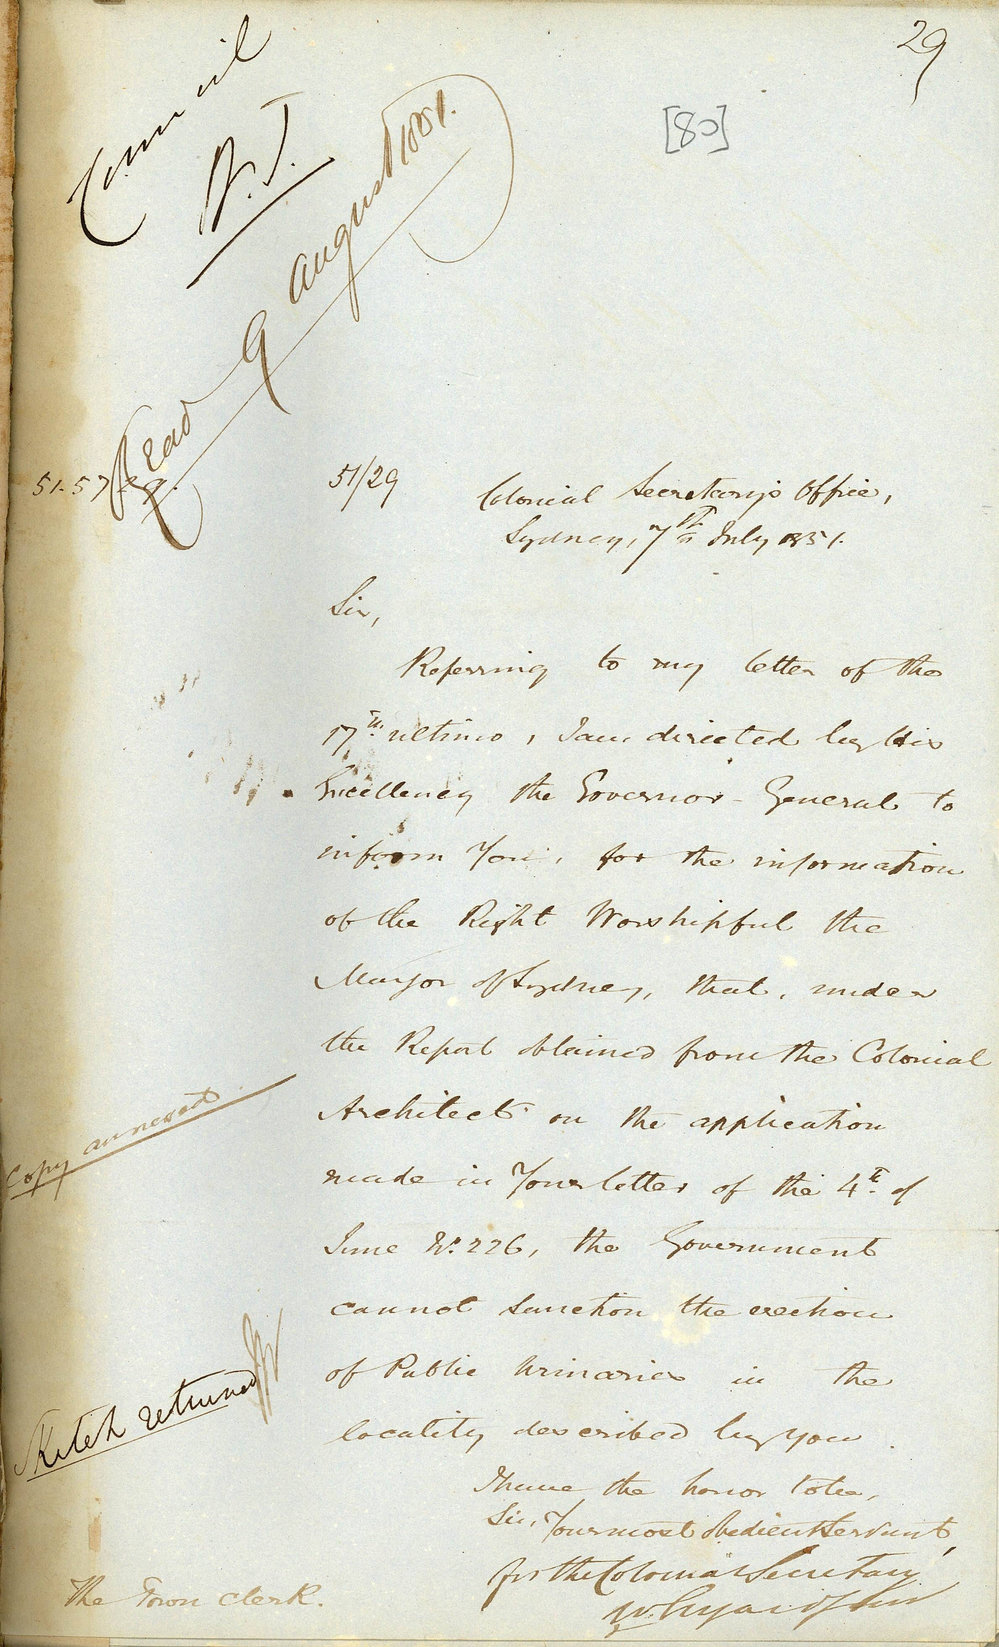 29
[80]
Council
Read 9 August 1851.
51/29
Colonial Secretary's Office,
Sydney, 7th July 1851.
Sir,
Referring to my letter of the
17th ultimo, I am directed by His
Excellency the Governor-General to
inform You, for the information
of the Right Worshipful the
Mayor of Sydney, that, under
the Report obtained from the Colonial
Copy annexed
Architect on the application
made in Your letter of the 4th of
June No. 226, the Government
cannot sanction the erection
of Public Urinaries in the
Sketch returned
locality described by you.
I have the honor to be,
Sir, Your most obedient Servant,
for the Colonial Secretary
The Town Clerk.